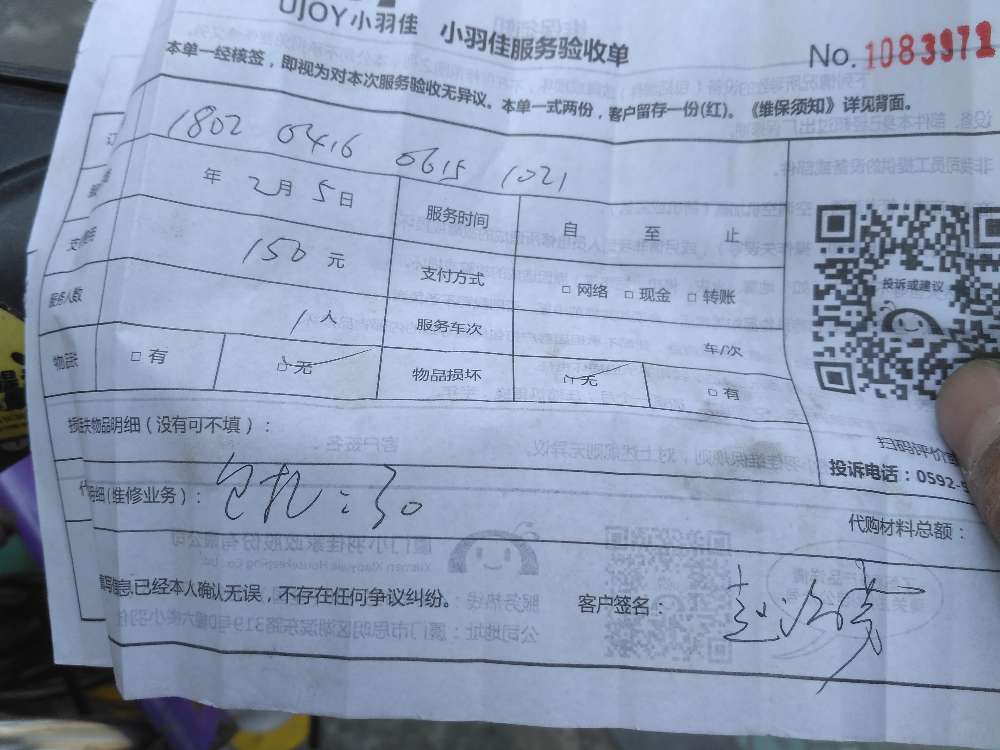 UJOY小羽佳 小羽佳服务验收单
No. 1083971
本单一经核签，即视为对本次服务验收无异议。本单一式两份，客户留存一份(红)。《维保须知》详见背面。
1802 0416 0615 1021
年 2月 5日 服务时间 自 至 止
150 元 支付方式 □ 网络 □ 现金 □ 转账
服务人数 1 人 服务车次 车/次
□ 有 □ 无 物品损坏 □ 无 □ 有
投诉或建议
失物品明细（没有可不填）：
扫码评价
投诉电话：0592-
明细(维修业务)： 包扎：30
代购材料总额：
信息已经本人确认无误，不存在任何争议纠纷。 客户签名：